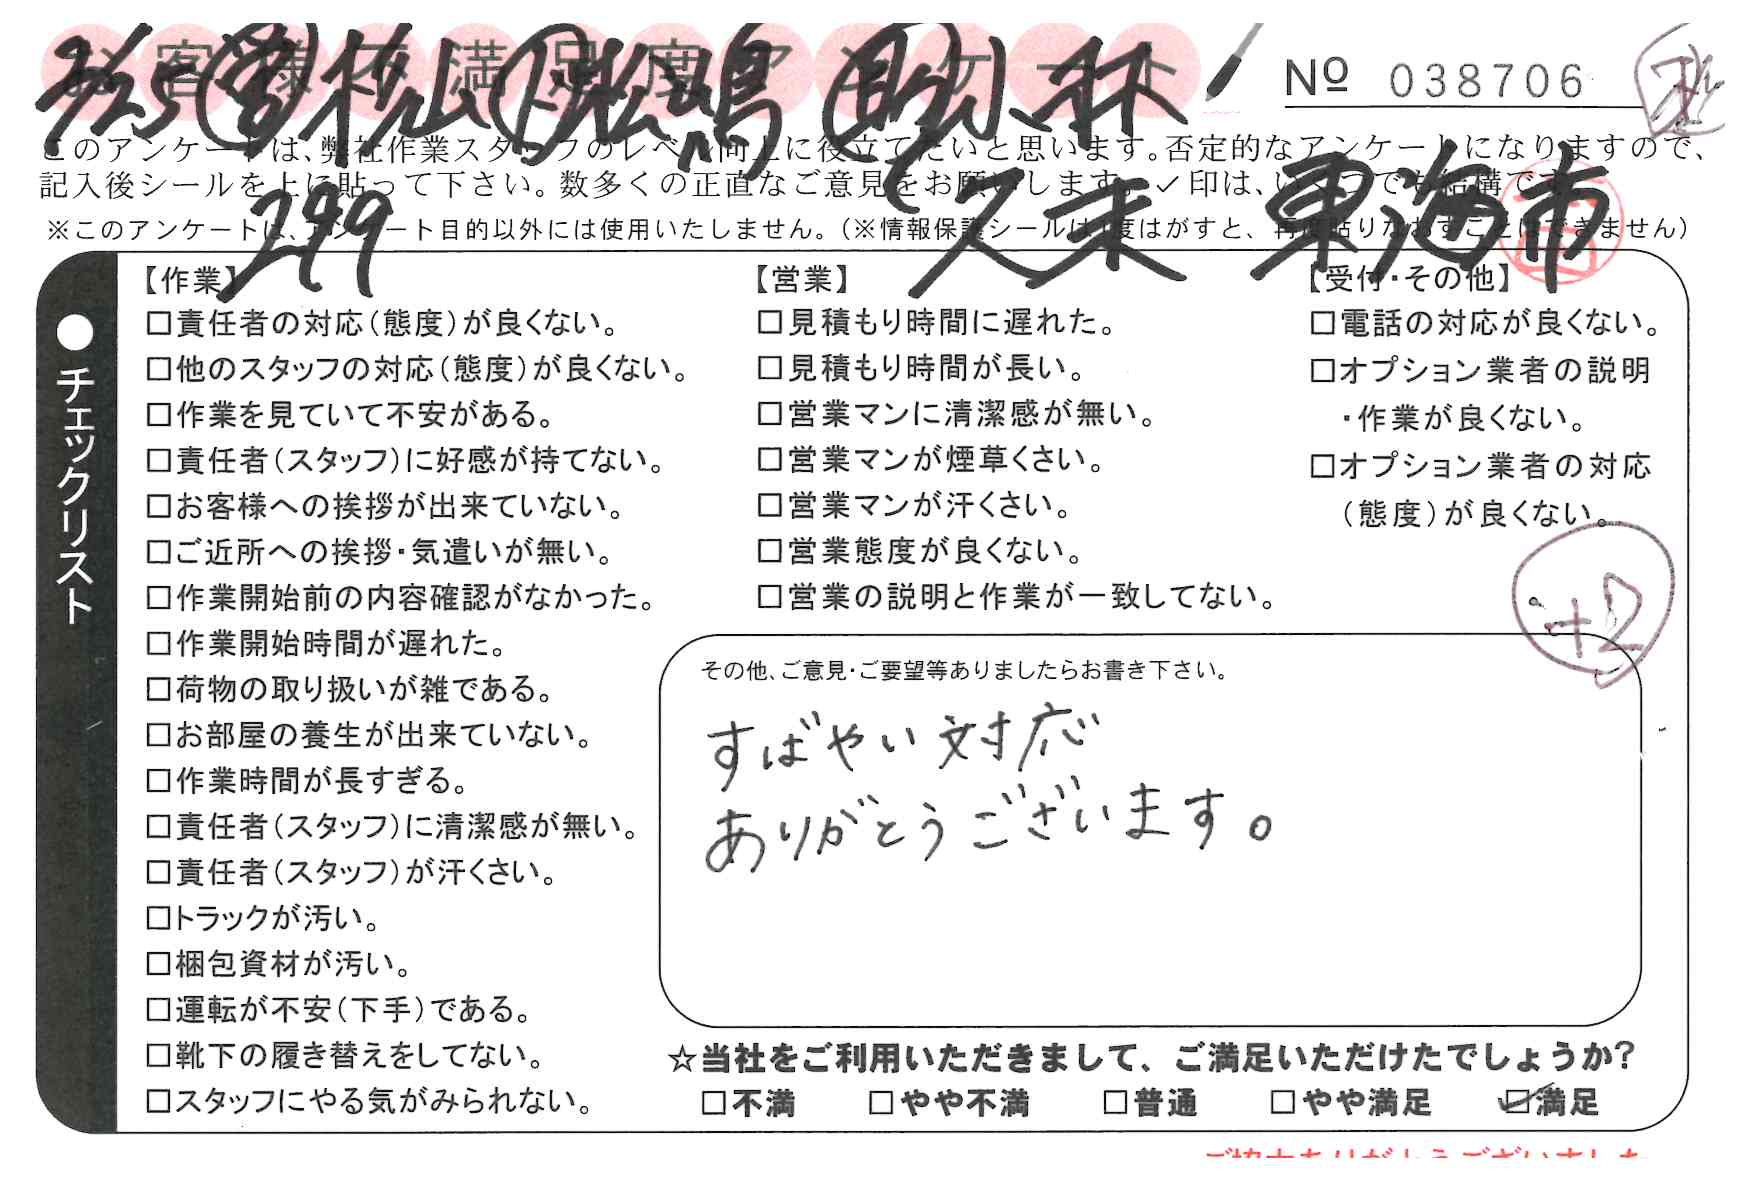 お客様不満足度アンケート
3/25 営 桜山 ト 松嶋 助 小林
No 038706
このアンケートは、弊社作業スタッフのレベル向上に役立てたいと思います。否定的なアンケートになりますので、
記入後シールを上に貼って下さい。数多くの正直なご意見をお願いします。✓印は、いくつでも結構です。
299 東海市
※このアンケートは、アンケート目的以外には使用いたしません。(※情報保護シールは1度はがすと、再度貼りなおすことはできません)
●チェックリスト
【作業】
□責任者の対応(態度)が良くない。
□他のスタッフの対応(態度)が良くない。
□作業を見ていて不安がある。
□責任者(スタッフ)に好感が持てない。
□お客様への挨拶が出来ていない。
□ご近所への挨拶・気遣いが無い。
□作業開始前の内容確認がなかった。
□作業開始時間が遅れた。
□荷物の取り扱いが雑である。
□お部屋の養生が出来ていない。
□作業時間が長すぎる。
□責任者(スタッフ)に清潔感が無い。
□責任者(スタッフ)が汗くさい。
□トラックが汚い。
□梱包資材が汚い。
□運転が不安(下手)である。
□靴下の履き替えをしてない。
□スタッフにやる気がみられない。
【営業】
□見積もり時間に遅れた。
□見積もり時間が長い。
□営業マンに清潔感が無い。
□営業マンが煙草くさい。
□営業マンが汗くさい。
□営業態度が良くない。
□営業の説明と作業が一致してない。
【受付・その他】
□電話の対応が良くない。
□オプション業者の説明
・作業が良くない。
□オプション業者の対応
(態度)が良くない。
+2
その他、ご意見・ご要望等ありましたらお書き下さい。
すばやい対応
ありがとうございます。
☆当社をご利用いただきまして、ご満足いただけたでしょうか?
□不満 □やや不満 □普通 □やや満足 ☑満足
ご協力ありがとうございました